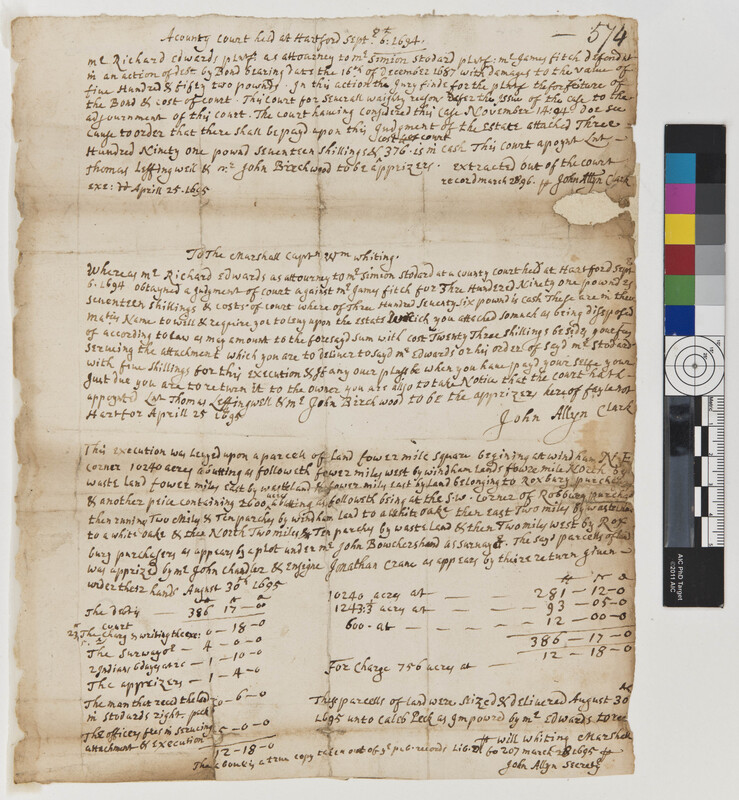 574
A county court held at Hartford Septr 6th: 1694.
mr Richard Edwards plntf. as attourney to mr Simion Stodard plntf: mr James fitch defendat
in an action of debt by Bond bearing date the 16th of December 1687 with damages to the value of
five Hundred & fifty two pownds. In this action the Jury finds for the plntf the forfeiture of
the Bond & cost of court. This court for severall waighty reasons defer the issue of the case to the
adjournment of this court. The court haveing considered this case November 14:94 doe see
cause to order that there shall be payd upon this Judgment of the Estate attached Three
cost of court
Hundred Ninety one pownd Seventeen shillings & 376 - is in cash This court apoynt Lnt
Thomas Leffingwell & mr John Birchwood to be apprizers. extracted out of the court
exe: Aprill 25 - 1695 record march 2 96. John Allyn Clark
To The Marshall Captn Wm whiting.
Whereas mr Richard Edwards as attourney to mr Simion Stodard at a county court held at Hartford Sept
6. 1694 obtayned a Judgment of court against mr James fitch for Three Hundred Ninety one pownd
seventeen shillings & costs of court where of Three Hundred Seventy Six pownd is cash These are in their
maties Name to will & require you to leuy upon the Estate which you attached somuch as being disposed
of according to law as may amount to the foresayd sum with cost Twenty Three shillings besides your fees
serueing the attachment which you are to deliuer to sayd mr Edwards or his order of sayd mr Stodard
with five shillings for this execution & If any ouer pluss be when you haue payd your selfe your
Just due you are to return it to the owner you are also to take Notice that the court hath
appoynted Lnt Thomas Leffingwell & mr John Birchwood to be the apprizers hereof fayle not
Hartfor Aprill 25 1695
John Allyn Clark
This execution was leuyed upon a parcell of land fower mile square begining at windham N.E
corner 10240 acres abutting as followeth fower miles west by windham lands fower mile North by
waste land fower miles East by wasteland & fower mile east by land belonging to Roxbury purchasers
& another peice containing 2600 acres abutting as followeth being at the S.W. corner of Roxbury purchase
then runing Two Mile & Ten parches by windham land to a white oake then East Two miles by waste land
to a white oake & then North Two miles & Ten parches by waste land & then Two miles west by Rox
bury purchasers as appears by a plot under mr John Bowchers hand as Surueyor. The sayd parcells of land
was apprized by mr John Chandler & Ensigne Jonathan Crane as appears by theire return given
under their hands August 30th 1695
The debt is 386 - 17 - 00
court
The Charg & writing the exe: 0 - 18 - 0
The Surueyor - 4 - 0 - 0
2 Indians 6 dayes att - 1 - 10 - 0
The apprizers - 1 - 4 - 0
The man that reced the land 0 - 6 - 0
in Stodards right. peck
The officers fees in serueing 5 - 0 - 0
attachment & Execution
12 - 18 - 0
10240 acres at - 281 - 12 - 0
1243 acres at - 93 - 05 - 0
600 - at - 12 - 00 - 0
386 - 17 - 0
12 - 18 - 0
For Charge 756 acres at
These parcells of land were Seized & deliuered August 30
1695 unto Caleb Peck as Impowrd by mr Edwards to rece
will Whiting Marshall
The aboue is a true copy taken out of ye pub: records Lib: D fo 207 march 28 1695
John Allyn Secrety
AIC PhD Target
©2011 AIC